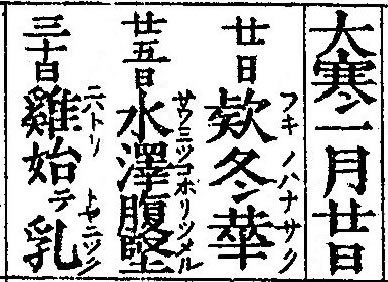 大寒ン一月廿日
廿日 欵冬ン華
フキノハナサク
廿五日 水澤腹堅
サワミツコホリツメル
三十日 雞始テ乳
ニハトリ トヤニツク